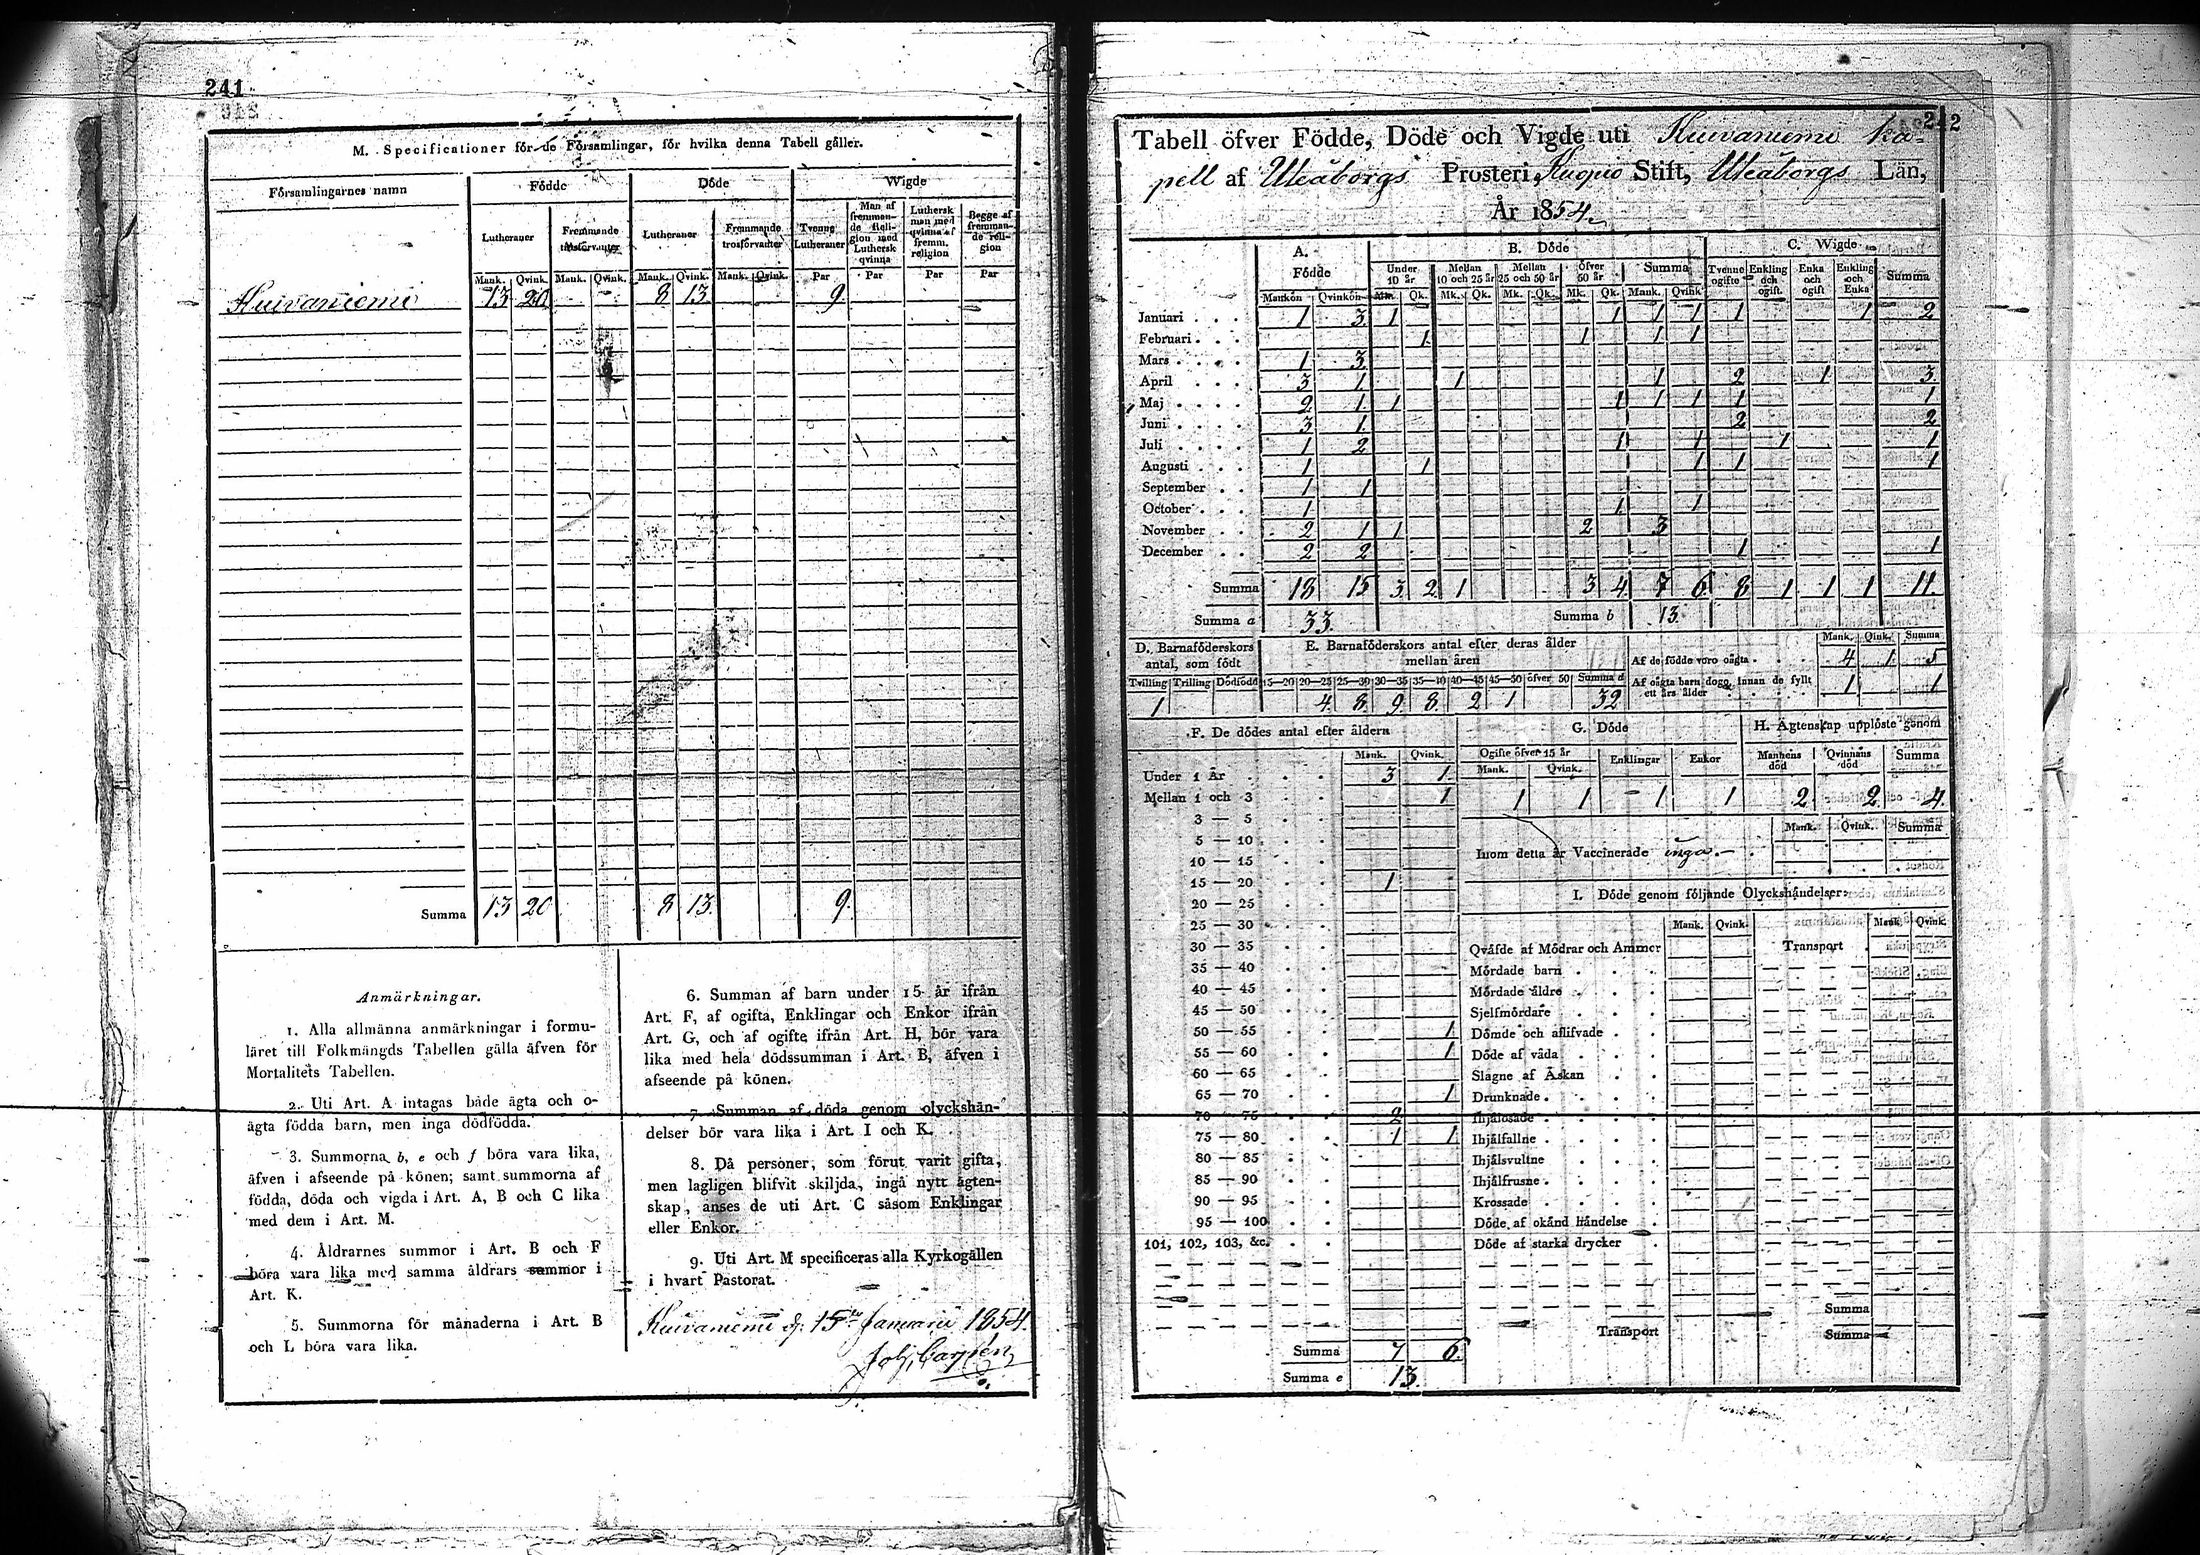 241
M. Specificationer för de Församlingar, för hvilka denna Tabell gäller.
Församlingarnes namn Födde Döde Wigde
Lutheraner Fremmande trosförvanter Lutheraner Fremmande trosförvanter Tvenne Lutheraner Man af fremmande Religion med Luthersk qvinna Luthersk man med qvinna af fremm. religion Begge af fremmande religion
Mank. Qvink. Mank. Qvink. Mank. Qvink. Mank. Qvink. Par Par Par Par
Kuivaniemi 13 20 - - 8 13 9
Summa 13 20 8 13 9
Anmärkningar.
1. Alla allmänna anmärkningar i formu-
läret till Folkmängds Tabellen gälla äfven för
Mortalitets Tabellen.
2. Uti Art. A intagas både ägta och o-
ägta födda barn, men inga dödfödda.
3. Summorna b, e och f böra vara lika,
äfven i afseende på könen; samt summorna af
födda, döda och vigda i Art. A, B och C lika
med dem i Art. M.
4. Åldrarnes summor i Art. B och F
böra vara lika med samma åldrars summor i
Art. K.
5. Summorna för månaderna i Art. B
och L böra vara lika.
6. Summan af barn under 15 år ifrån
Art. F, af ogifta, Enklingar och Enkor ifrån
Art. G, och af ogifte ifrån Art. H, bör vara
lika med hela dödssumman i Art. B, äfven i
afseende på könen.
7. Summan af döda genom olyckshän-
delser bör vara lika i Art. I och K.
8. Då personer, som förut varit gifta,
men lagligen blifvit skiljda, ingå nytt ägten-
skap, anses de uti Art. C såsom Enklingar
eller Enkor.
9. Uti Art. M specificeras alla Kyrkogällen
i hvart Pastorat.
Kuivaniemi d. 15 Januarii 1854.
242
Tabell öfver Födde, Döde och Vigde uti Kuivaniemi ka-
pell af Uleåborgs Prosteri, Kuopio Stift, Uleåborgs Län,
År 1854.
A. Födde B. Döde C. Wigde
Under 10 år Mellan 10 och 25 år Mellan 25 och 50 år Öfver 50 år Summa Tvenne ogifte Enkling och ogift. Enka och ogift Enkling och Enka Summa
Mankön Qvinkön Mk. Qk. Mk. Qk. Mk. Qk. Mk. Qk. Mank. Qvink
Januari 1 3 1 1 1 1 1 1 2
Februari 1 1 1 1
Mars 1 3
April 3 1 1 1 2 1 3
Maj 2 1 1 1 1 1 1 1
Juni 3 1 2 2
Juli 1 2 1 1 1 1
Augusti 1 1 1 1 1
September 1 1
October 1 1 1
November 2 1 1 2 3
December 2 2 1 1
Summa 18 15 3 2 1 3 4 7 6 8 1 1 1 11.
Summa a 33 Summa b 13.
D. Barnaföderskors antal, som födt
Tvilling Trilling Dödfödd
1
E. Barnaföderskors antal efter deras ålder mellan åren
15—20 20—25 25—30 30—35 35—40 40—45 45—50 öfver 50 Summa d
4 8 9 8 2 1 32
Mank. Qink. Summa
Af de födde voro oägta 4 1 5
Af oägta barn dogo innan de fyllt ett års ålder 1 1
F. De dödes antal efter åldern
Mank. Qvink.
Under 1 År 3 1
Mellan 1 och 3 1
3 — 5
5 — 10
10 — 15
15 — 20 1
20 — 25
25 — 30
30 — 35
35 — 40
40 — 45
45 — 50
50 — 55 1
55 — 60 1
60 — 65
65 — 70 1
70 — 75 2
75 — 80 1 1
80 — 85
85 — 90
90 — 95
95 — 100
101, 102, 103, &c.
Summa 7 6
Summa e 13
G. Döde
Ogifte öfver 15 år Enklingar Enkor
Mank. Qvink.
1 1 1 1
H. Ägtenskap upplöste genom
Mannens död Qvinnans död Summa
2 2 4.
Mank. Qvink. Summa
Inom detta år Vaccinerade inga.
I. Döde genom följande Olyckshändelser:
Mank. Qvink. Mank. Qvink.
Qväfde af Mödrar och Ammor Transport
Mördade barn
Mördade äldre
Sjelfmördare
Dömde och aflifvade
Döde af våda
Slagne af Åskan
Drunknade
Ihjälosade
Ihjälfallne
Ihjälsvultne
Ihjälfrusne
Krossade
Döde af okänd händelse
Döde af starka drycker
Summa
Transport Summa